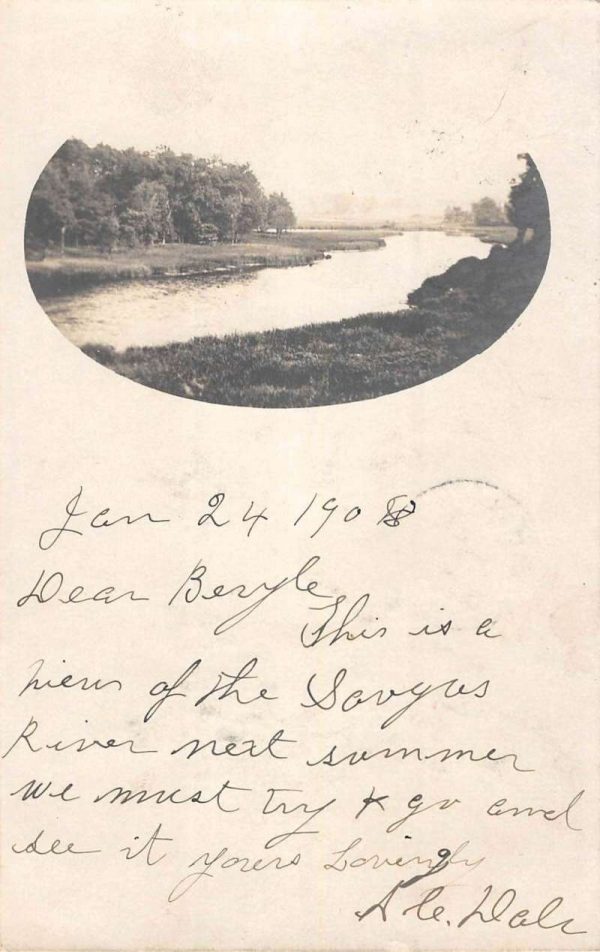 Jan 24 1908
Dear Beryle
This is a
view of the Sovgus
River next summer
we must try & go and
see it yours Lovingly